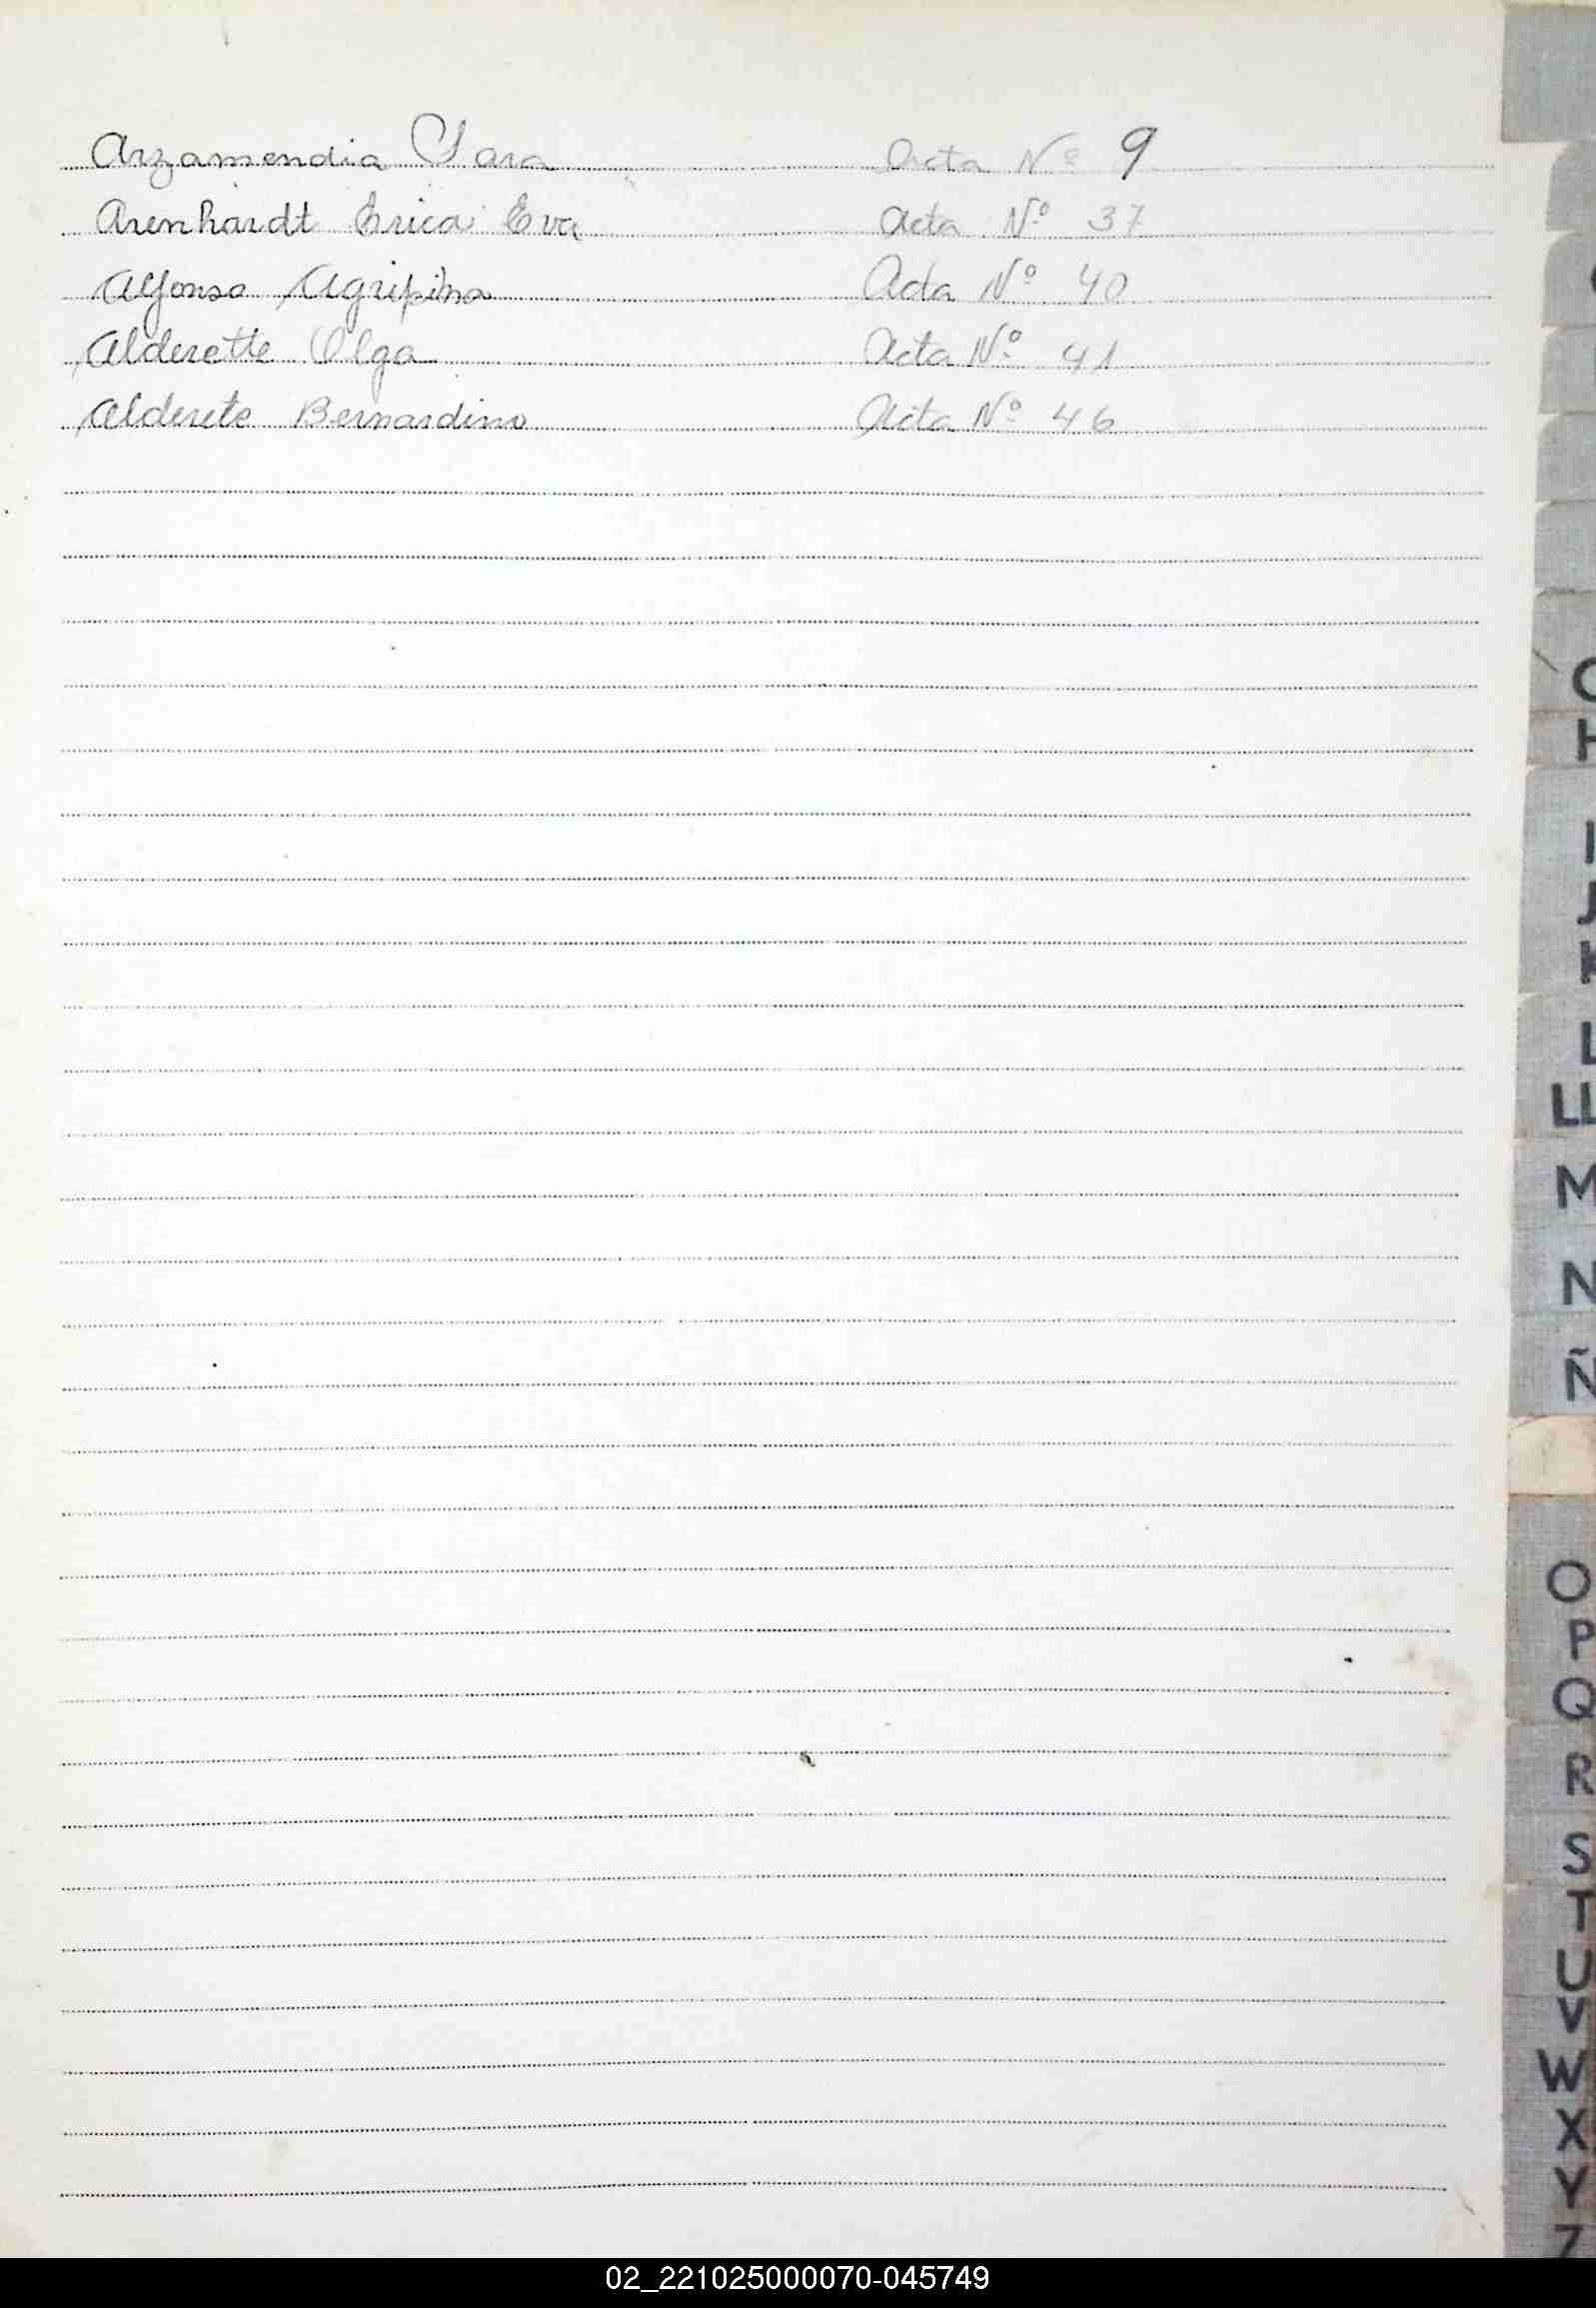 Arzamendia Sara Acta Nº 9
Arenhardt Erica Eva Acta Nº 37
Alfonso Agripina Acta Nº 40
Alderette Olga Acta Nº 41
Alderete Bernardino Acta Nº 46
H
I
J
K
L
LL
M
N
Ñ
O
P
Q
R
S
T
U
V
W
X
Y
Z
02_221025000070-045749